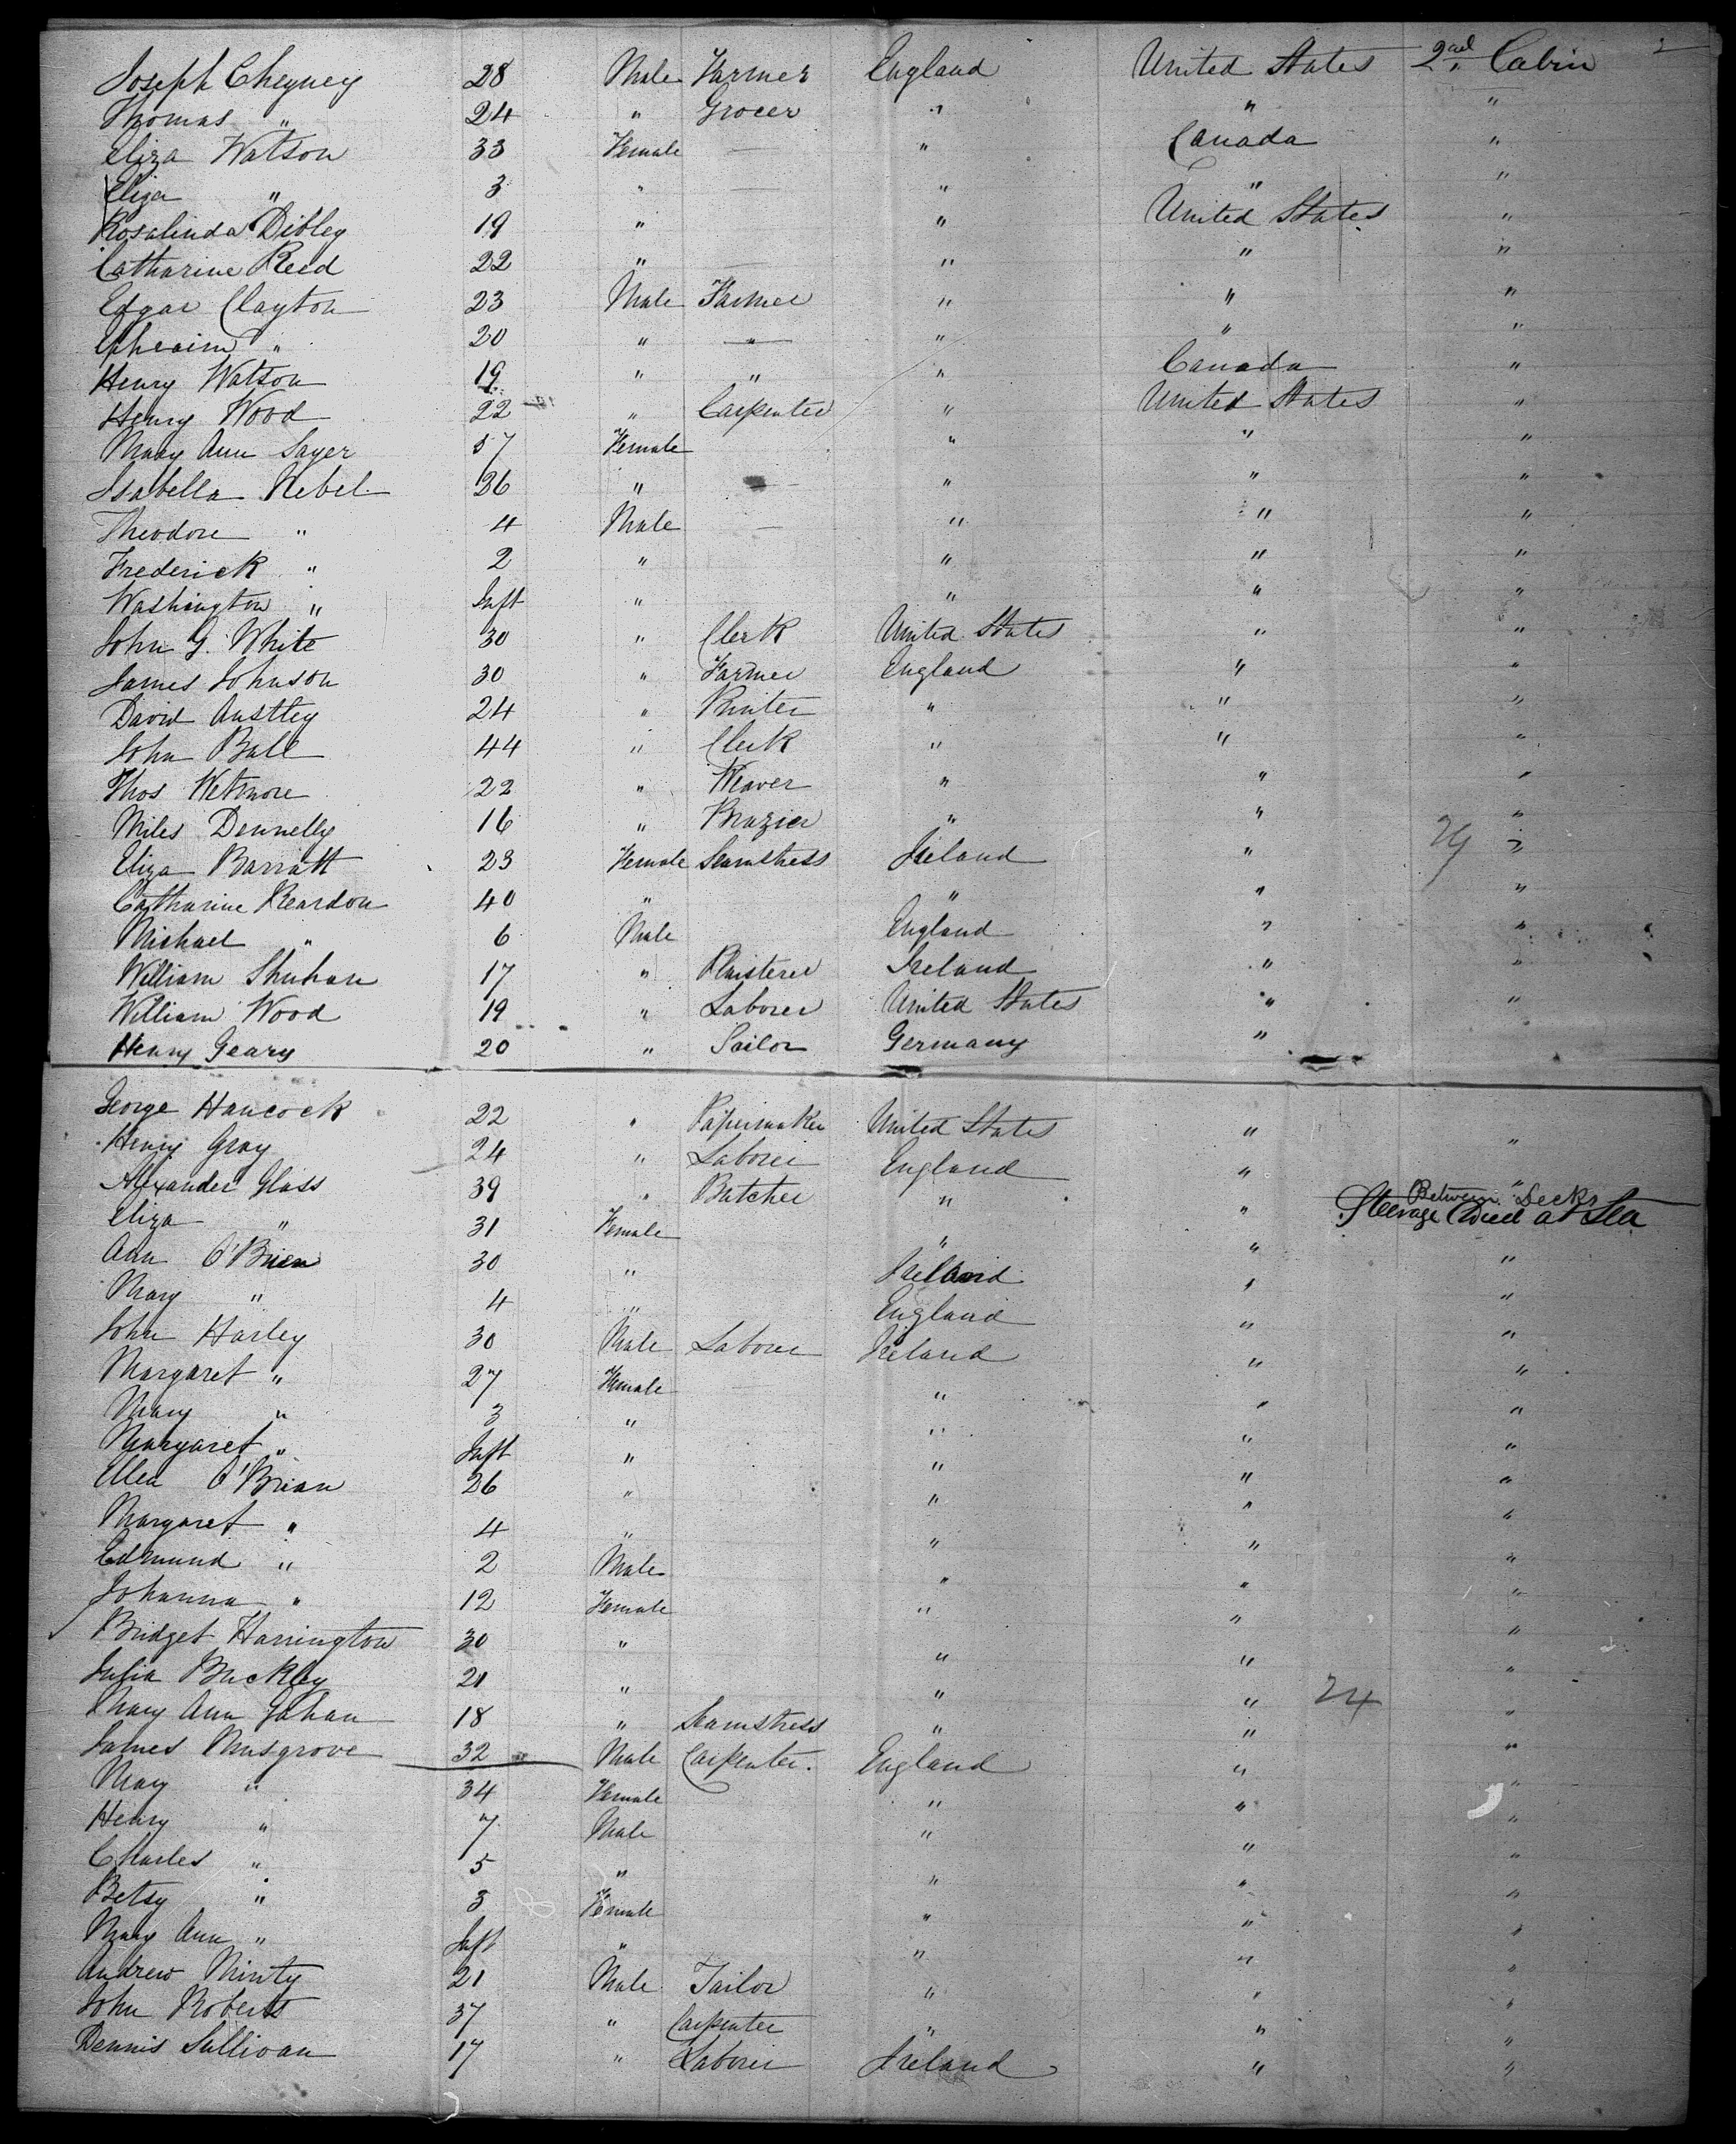 Joseph Cheyney 28 Male Farmer England United States 2nd Cabin 2
Thomas " 24 " Grocer " " "
Eliza Watson 33 Female — " Canada "
Eliza " 3 " — " " "
Rosalinda Dibley 19 " " United States "
Catharine Reed 22 " — " " "
Edgar Clayton 23 Male Farmer " " "
Ephraim " 20 " " " " "
Henry Watson 19 " " " Canada "
Henry Wood 22 " Carpenter " United States "
Mary Ann Sayer 57 Female " " "
Isabella Nebel 36 " — " " "
Theodore " 4 Male — " " "
Frederick " 2 " " " "
Washington " Inft " " " "
John G. White 30 " Clerk United States " "
James Johnson 30 " Farmer England " "
David Ansttey 24 " Printer " " "
John Ball 44 " Clerk " " "
Thos Wetmore 22 " Weaver " " "
Miles Dennelly 16 " Brazier " " "
Eliza Barratt 23 Female Seamstress Ireland " 29 "
Catharine Reardon 40 " " " "
Michael " 6 Male England " "
William Shuhan 17 " Plaisterer Ireland " "
William Wood 19 " Laborer United States " "
Henry Geary 20 " Sailor Germany "
George Hancock 22 " Papermaker United States " "
Henry Gray 24 " Laborer England " "
Alexander Glass 39 " Butcher " " Between Decks
Eliza " 31 Female " " Steerage Died at Sea
Ann O'Brien 30 " Ireland " "
Mary " 4 " England " "
John Harley 30 Male Laborer Ireland " "
Margaret " 27 Female " " "
Mary " 3 " " " "
Margaret " Inft " " " "
Ellen O'Brian 26 " " " "
Margaret " 4 " " " "
Edmund " 2 Male " " "
Johanna " 12 Female " " "
Bridget Harrington 30 " " " "
Julia Buckley 21 " " " 24 "
Mary Ann Gahan 18 " Seamstress " " "
James Musgrove 32 Male Carpenter. England " "
Mary " 34 Female " " "
Henry " 7 Male " " "
Charles " 5 " " " "
Betsy " 3 Female " " "
Mary Ann " Inft " " " "
Andrew Minty 21 Male Tailor " " "
John Roberts 37 " Carpenter " " "
Dennis Sullivan 17 " Laborer Ireland " "